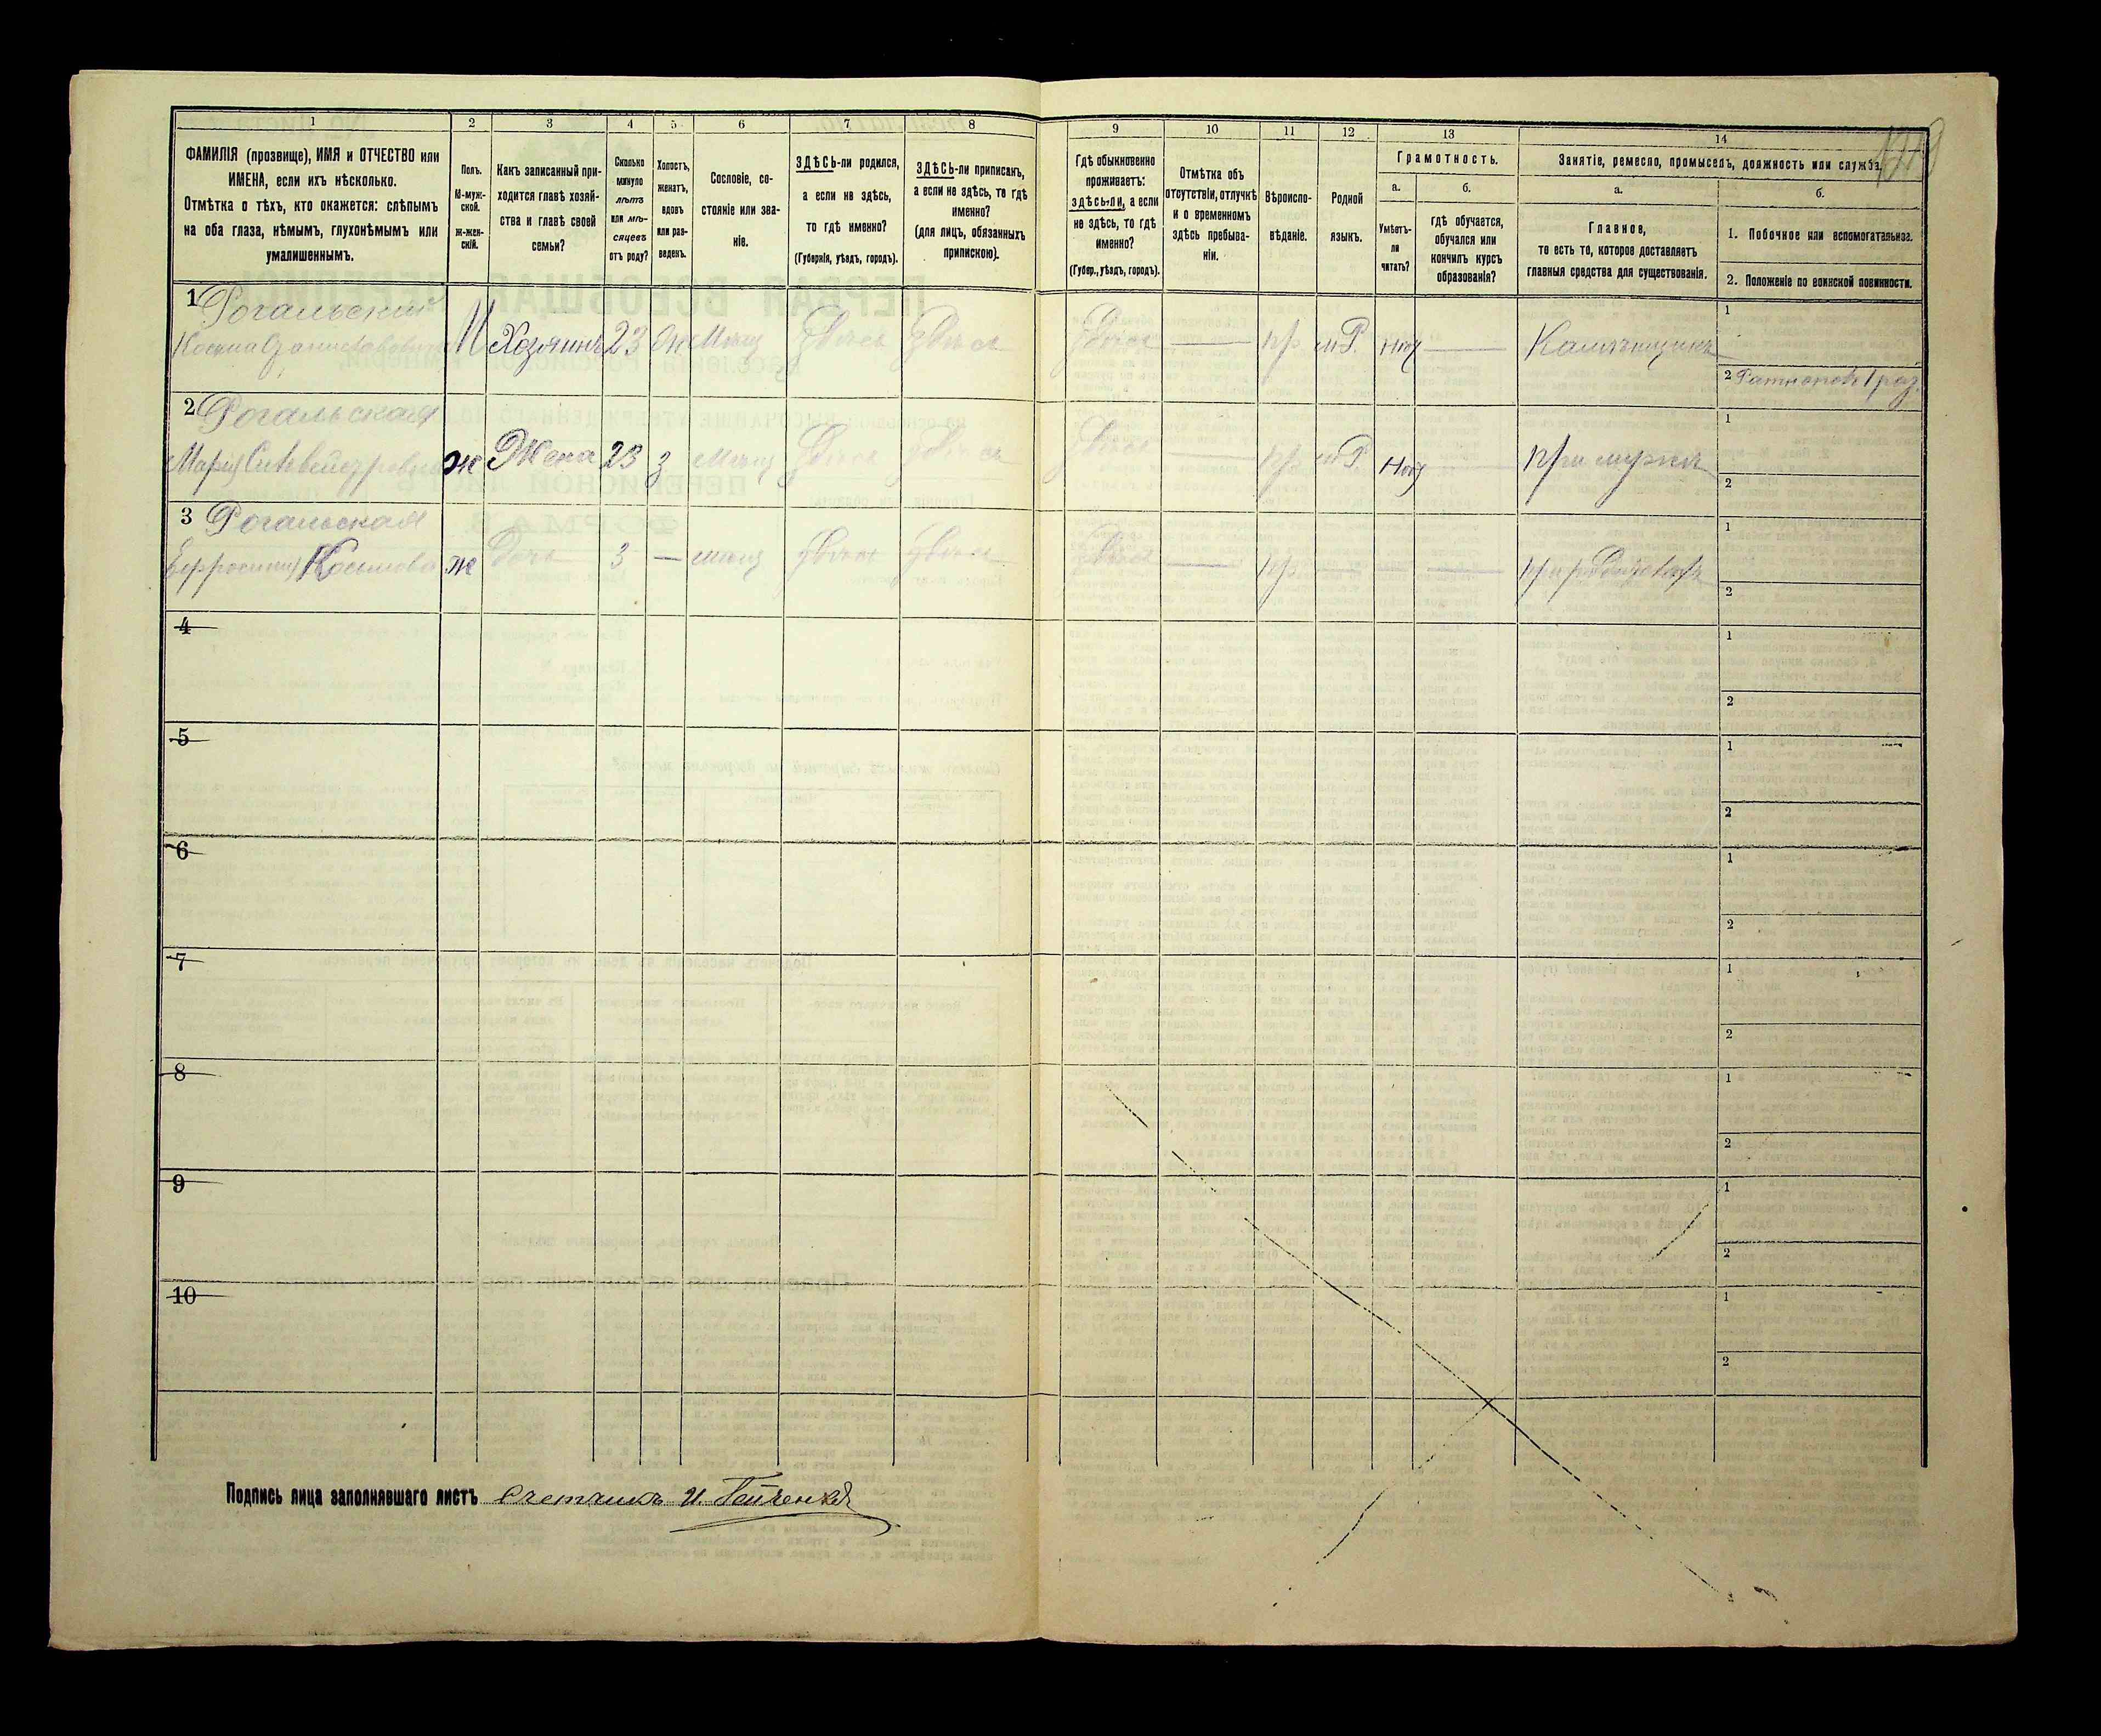 1
2
3
4
5
6
7
8
9
10
11
12
13
14
ФАМИЛІЯ (прозвище), ИМЯ и ОТЧЕСТВО или
ИМЕНА, если ихъ нѣсколько.
Отмѣтка о тѣхъ, кто окажется: слѣпымъ
на оба глаза, нѣмымъ, глухонѣмымъ или
умалишеннымъ.
Полъ.
М-муж-
ской.
ж-жен-
скій.
Какъ записанный при-
ходится главѣ хозяй-
ства и главѣ своей
семьи?
Сколько
минуло
лѣтъ
или мѣ-
сяцевъ
отъ роду?
Холостъ,
женатъ,
вдовъ
или раз-
веденъ.
Сословіе, со-
стояніе или зва-
ніе.
ЗДѢСЬ-ли родился,
а если не здѣсь,
то гдѣ именно?
(Губернія, уѣздъ, городъ).
ЗДѢСЬ-ли приписанъ,
а если не здѣсь, то гдѣ
именно?
(для лицъ, обязанныхъ
припискою).
Гдѣ обыкновенно
проживаетъ:
здѣсь-ли, а если
не здѣсь, то гдѣ
именно?
(Губер., уѣздъ, городъ).
Отмѣтка объ
отсутствіи, отлучкѣ
и о временномъ
здѣсь пребыва-
ніи.
Вѣроиспо-
вѣданіе.
Родной
языкъ.
Грамотность.
а.
б.
Умѣетъ-
ли
читать?
гдѣ обучается,
обучался или
кончилъ курсъ
образованія?
Занятіе, ремесло, промыселъ, должность или служба.
а.
б.
Главное,
то есть то, которое доставляетъ
главныя средства для существованія.
1. Побочное или вспомогательное.
2. Положеніе по воинской повинности.
1 Рогальскій
Косьма М Хозяинъ 23 Ж Мѣщ Здѣсь Здѣсь Здѣсь — пр м Р. Нѣт —
1
2 Ратникъ 1 раз.
2 Рогальская
Марія ж Жена 23 З Мѣщ Здѣсь Здѣсь Здѣсь — пр м Р. Нѣт — при мужѣ
1
2
3 Рогальская
Ефросинія Косьмова ж Дочь 3 — мѣщ Здѣсь Здѣсь Здѣсь — пр — — —
1
2
4
1
2
5
1
2
6
1
2
7
1
2
8
1
2
9
1
2
10
1
2
Подпись лица заполнявшаго листъ Счетчикъ И.